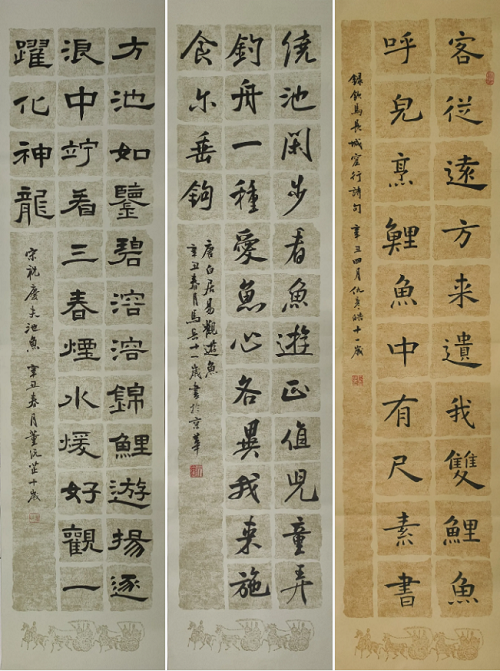 客從遠方来遺我雙鯉魚
呼兒烹鯉魚中有尺素書
錄飲馬長城窟行詩句 辛丑四月仇十一歲
繞池閑步看魚遊正值兒童弄
釣舟一種愛魚心各異我来施
食尔垂鈎
唐白居易觀遊魚
辛丑春月馬十一歲書於京華
方池如鑒碧溶溶錦鯉遊揚逐
浪中竚看三春煙水煖好觀一
躍化神龍
宋祝慶夫池魚 辛丑春月董沅芷十歲